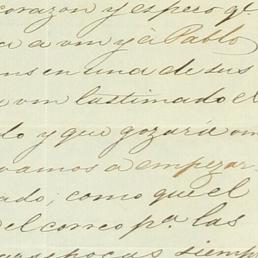 corazon y espero qe.
a a vm y à Pablo
ens en una de sus
a vm lastimado el
do y que gozará vm
vamos a empezar
ado; como que el
el correo pa. las
pocas siempre